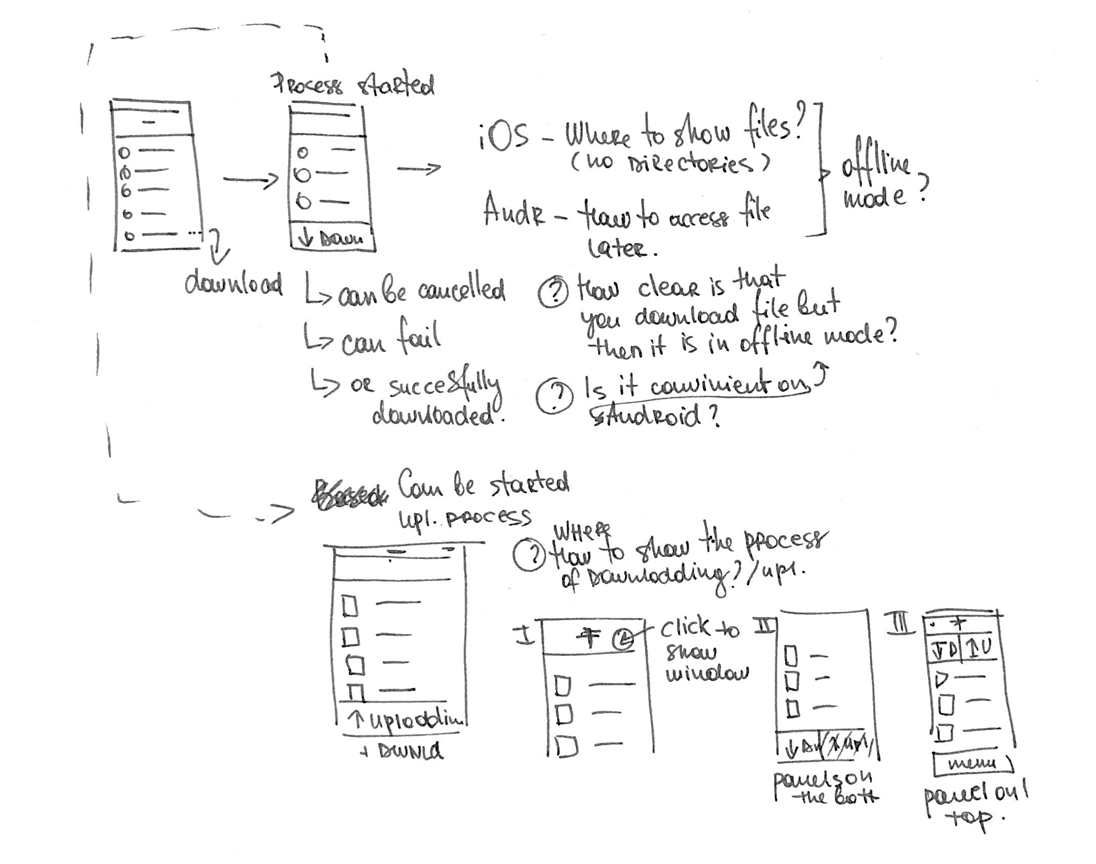 Process started
iOS – Where to show files?
(no Directories)
Andr – How to access file
later.
offline
mode?
↓ Down
download
↳ can be cancelled
↳ can fail
↳ or succesfully
downloaded.
? How clear is that
you download file but
then it is in offline mode?
? Is it convinient on
Android?
Can be started
upl. process
↑ Uploadin
+ DWNLd
WHERE
? How to show the process
of Downlodding?/upl.
I
Click to
show
window
II
panels on
the bott
III
↓D ↑U
menu
panel on
top.